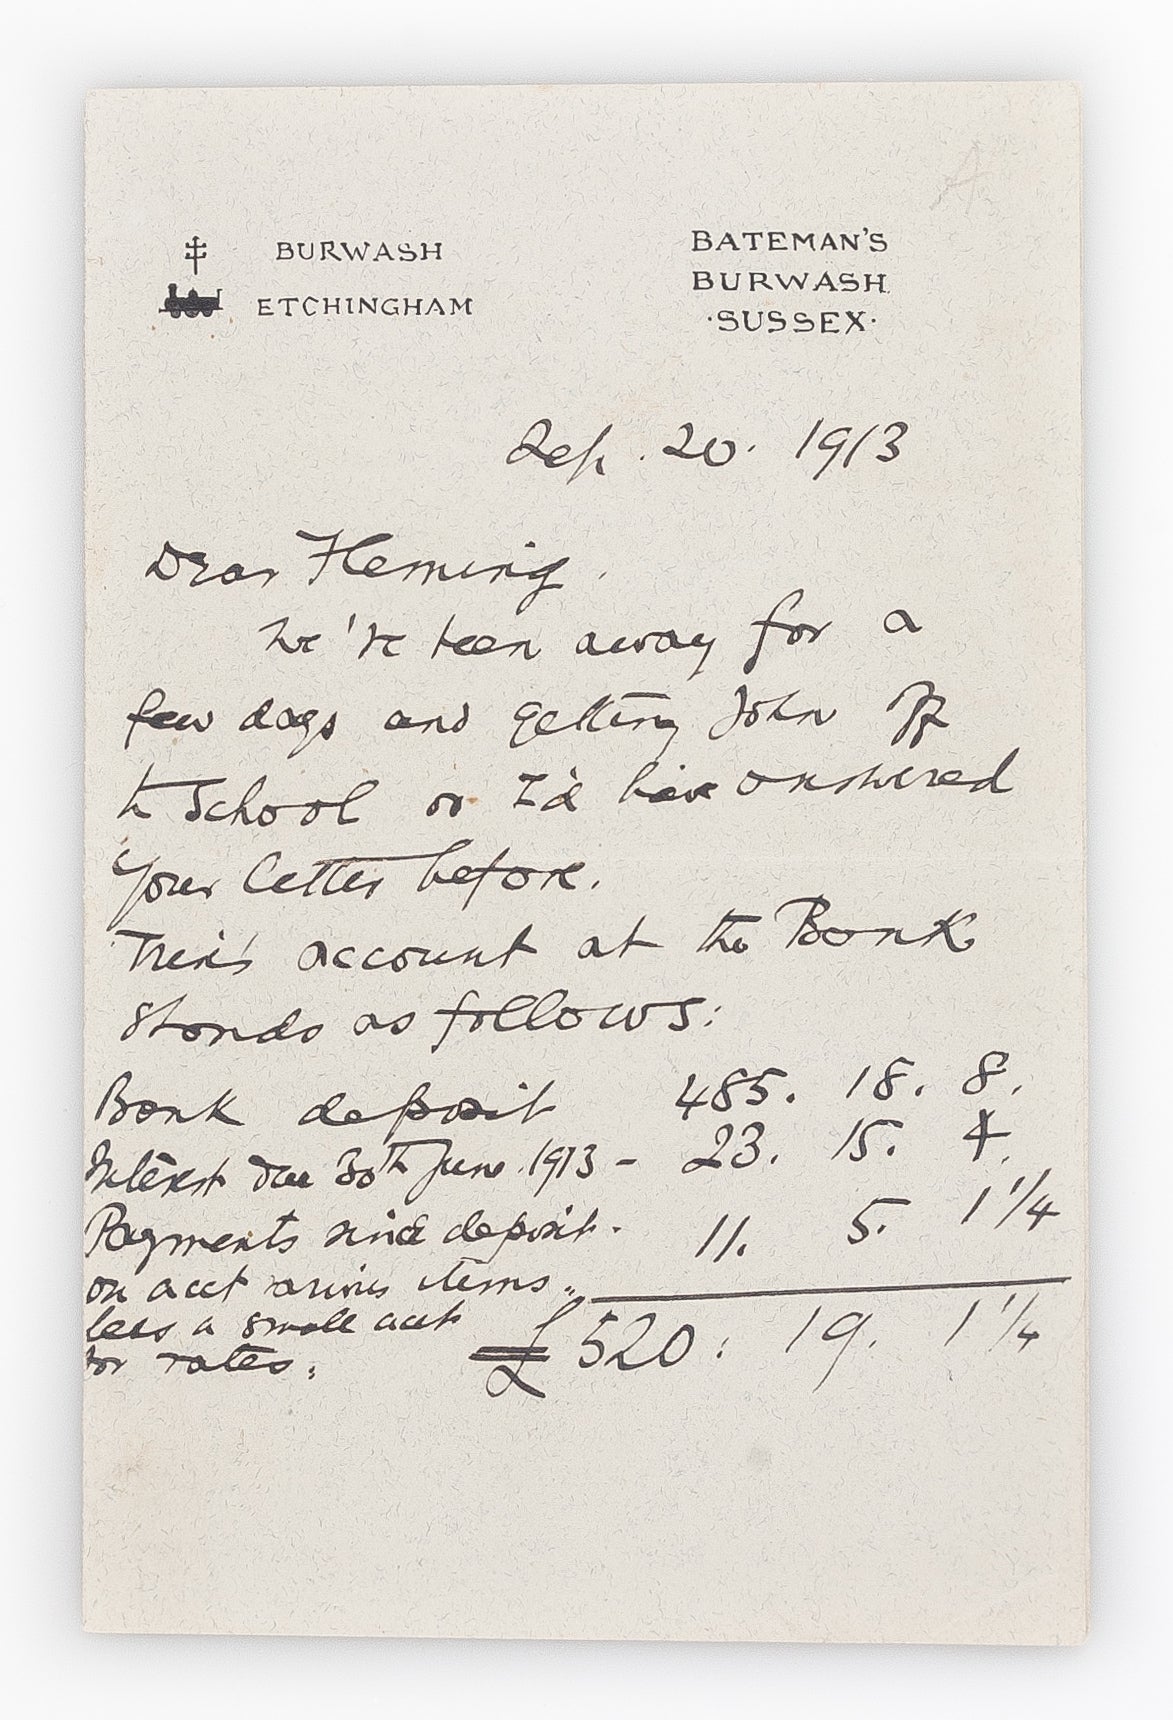 BURWASH
ETCHINGHAM
BATEMAN'S
BURWASH
·SUSSEX·
Sep. 20. 1913
Dear Fleming.
We've been away for a
few days and getting John off
to School or I'd have answered
your letter before.
Trix's account at the Bank
stands as follows:
Bank deposit 485. 18. 8.
Interest due 30th June 1913 - 23. 15. 4.
Payments since deposit. 11. 5. 1 1/4
on acct various items
less a small acct
for rates. £520: 19. 1 1/4